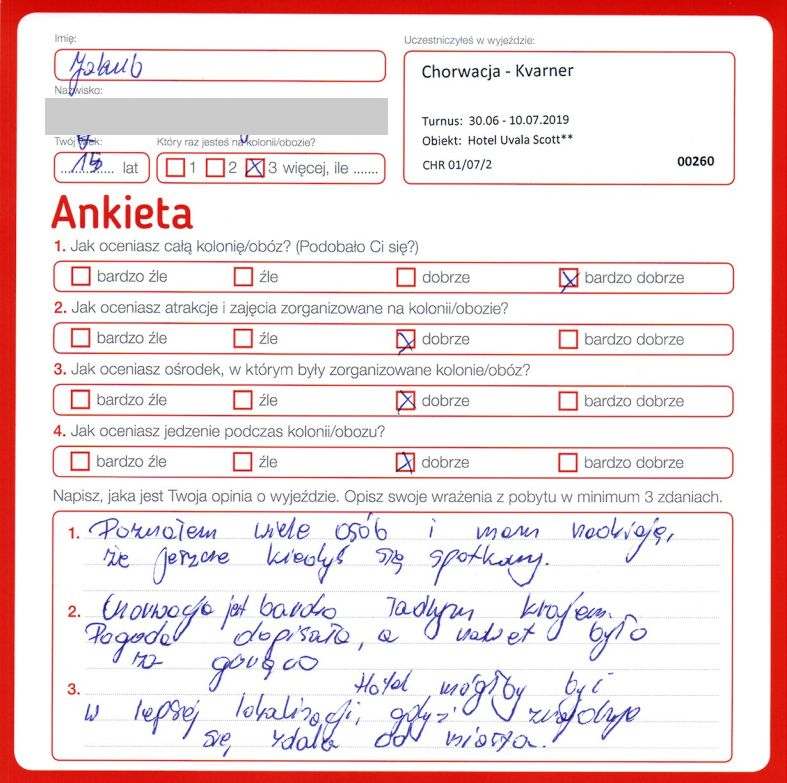 Imię:
Jakub
Uczestniczyłeś w wyjeździe:
Chorwacja - Kvarner
Turnus: 30.06 - 10.07.2019
Obiekt: Hotel Uvala Scott**
CHR 01/07/2
00260
Nazwisko:
Twój wiek:
15 lat
Który raz jesteś na kolonii/obozie?
1 2 3 więcej, ile .......
Ankieta
1. Jak oceniasz całą kolonię/obóz? (Podobało Ci się?)
bardzo źle źle dobrze bardzo dobrze
2. Jak oceniasz atrakcje i zajęcia zorganizowane na kolonii/obozie?
bardzo źle źle dobrze bardzo dobrze
3. Jak oceniasz ośrodek, w którym były zorganizowane kolonie/obóz?
bardzo źle źle dobrze bardzo dobrze
4. Jak oceniasz jedzenie podczas kolonii/obozu?
bardzo źle źle dobrze bardzo dobrze
Napisz, jaka jest Twoja opinia o wyjeździe. Opisz swoje wrażenia z pobytu w minimum 3 zdaniach.
1. Poznałem wiele osób i mam nadzieję,
że jeszcze kiedyś się spotkamy.
2. Chorwacja jest bardzo ładnym krajem.
Pogoda dopisała, a nawet było
za gorąco
3. Hotel mógłby być
w lepszej lokalizacji, gdyż znajduje
się zdala od miasta.